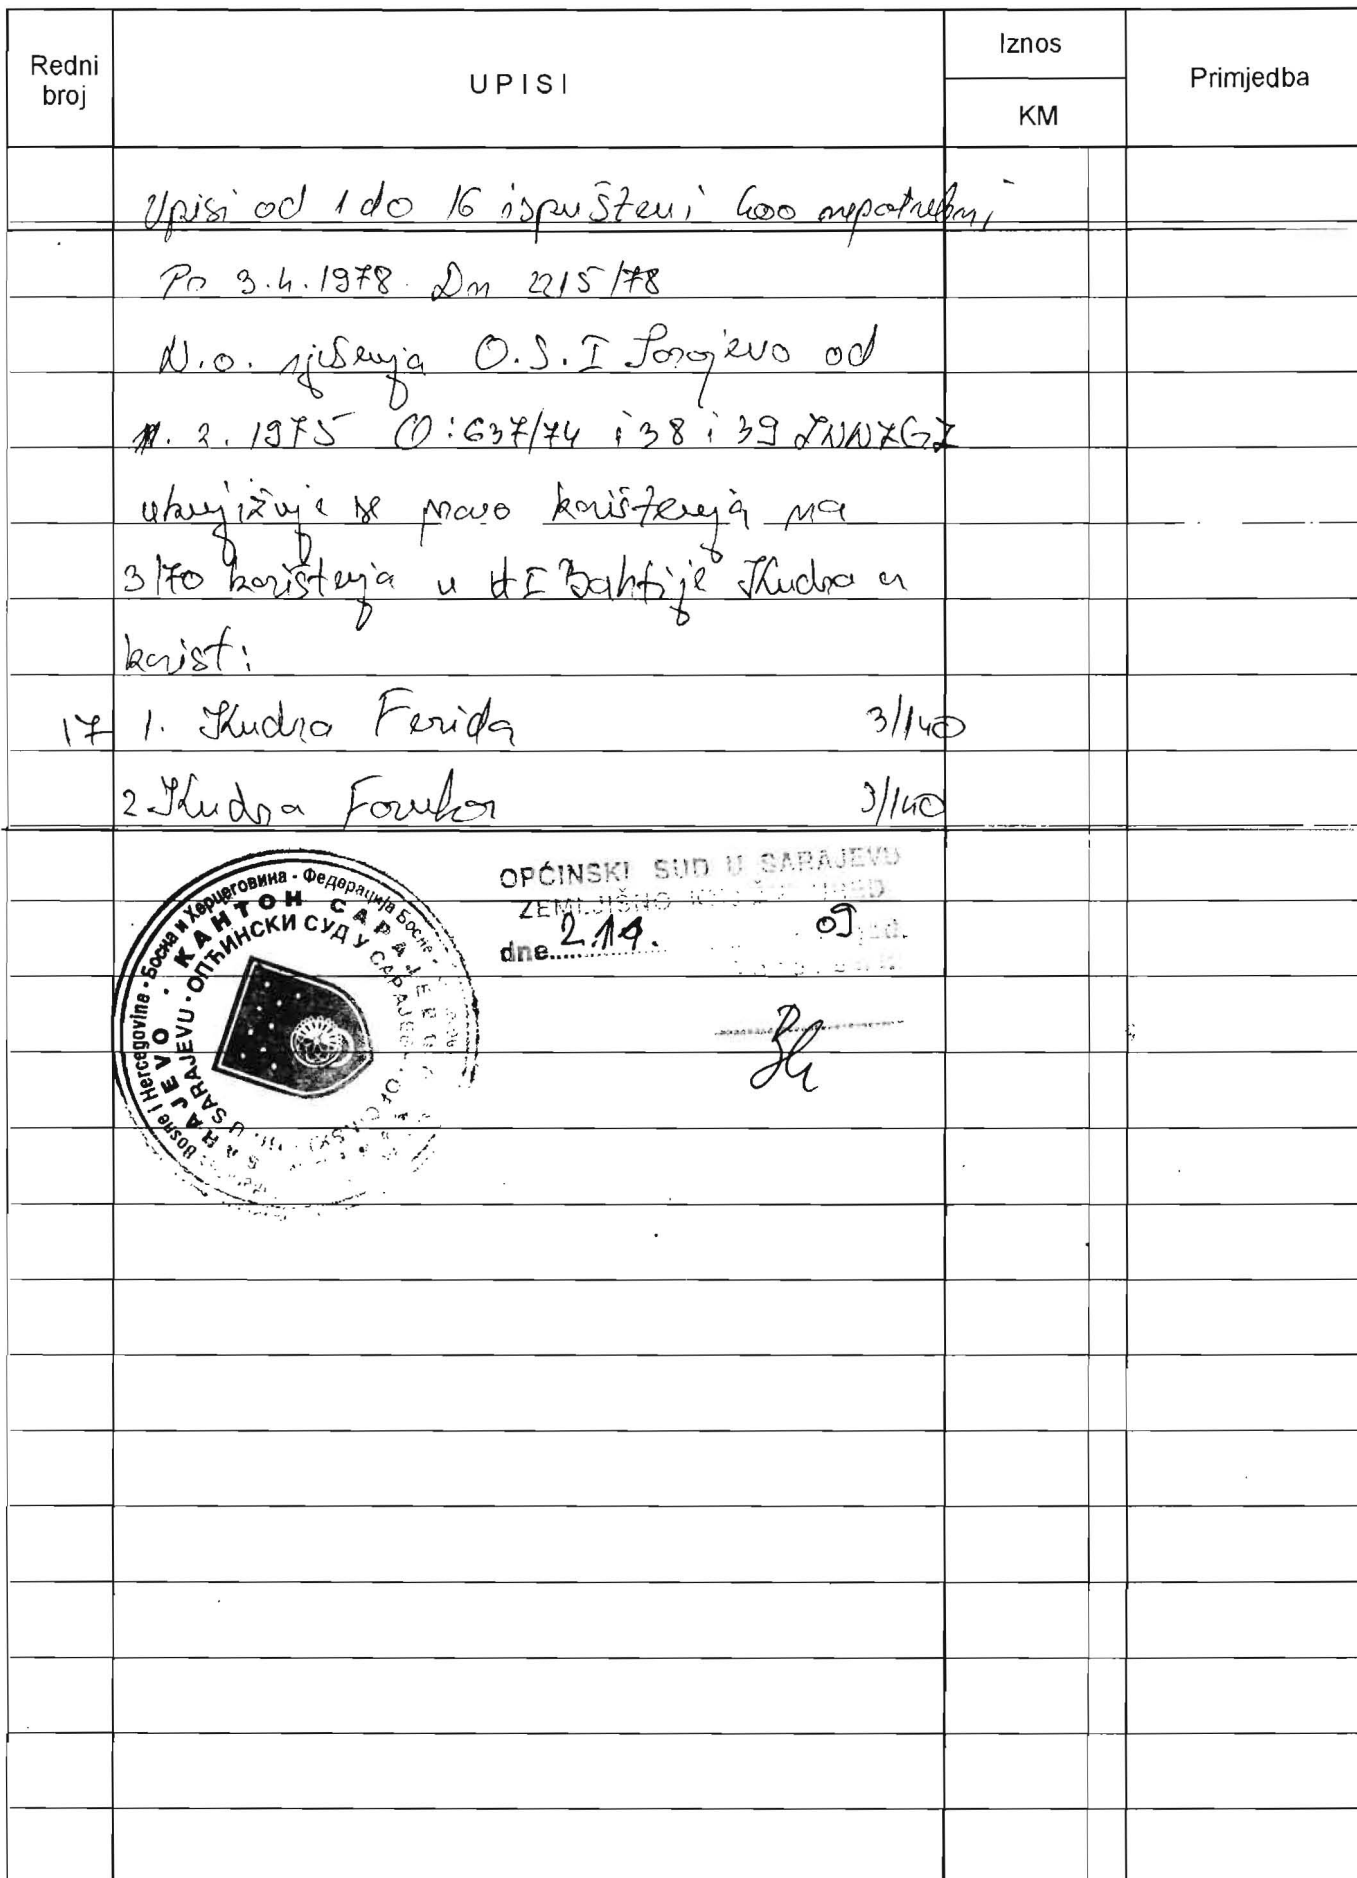 Redni broj
UPISI
Iznos
KM
Primjedba
Upisi od 1 do 16 ispušteni kao nepotrebni
Pr 3.4.1978. Dn 2215/78
N.o. rješenja O.S. I Sarajevo od
11.2.1975 O:637/74 i 38 i 39 ZNNZGZ
uknjižuje se pravo korištenja na
3/70 korištenja u Bahtije Kudra u
korist:
17 1. Kudra Ferida 3/140
2 Kudra 3/140
OPĆINSKI SUD U SARAJEVU
ZEMLJIŠNO
dne 2.11. 09 god.
Босна и Херцеговина - Федерација Босне
КАНТОН САРАЈЕВО
ОПЋИНСКИ СУД У САРАЈЕВУ
Bosne i Hercegovine
SARAJEVO
U SARAJEVU